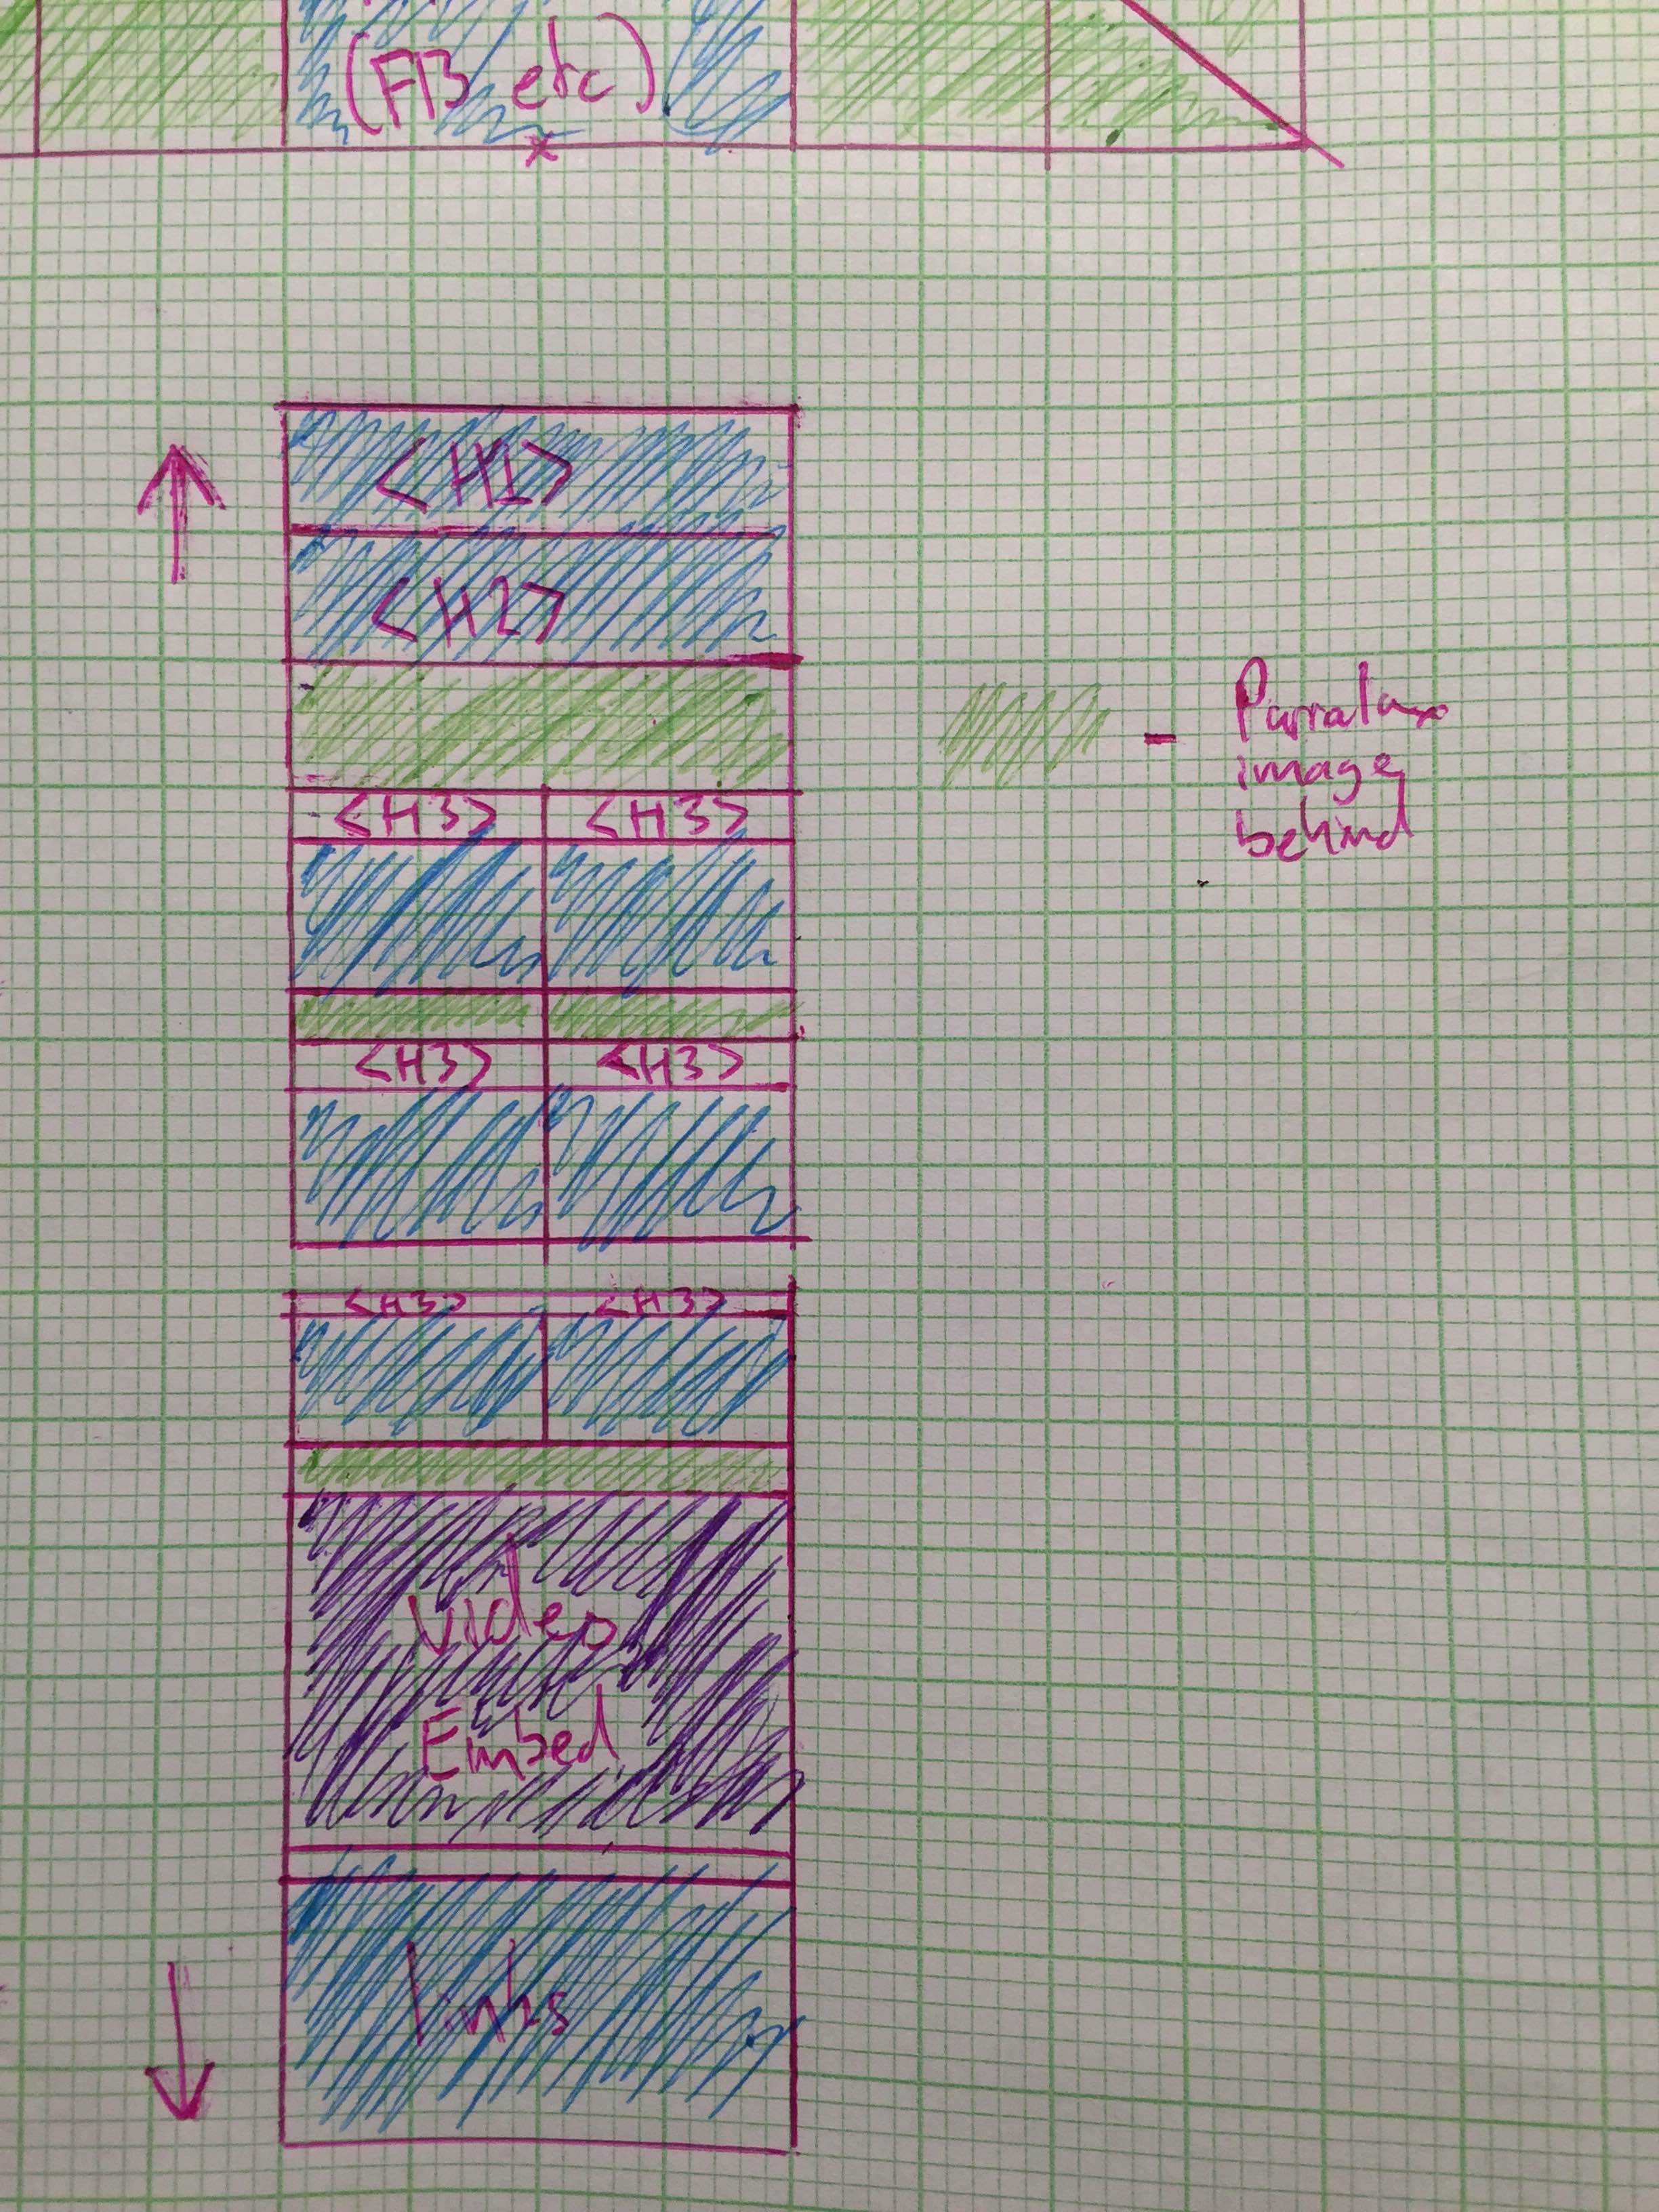 (FB etc)
<H1>
<H2>
Parralax
image
behind
<H3> <H3>
<H3> <H3>
<H3> <H3>
Video
Embed
links